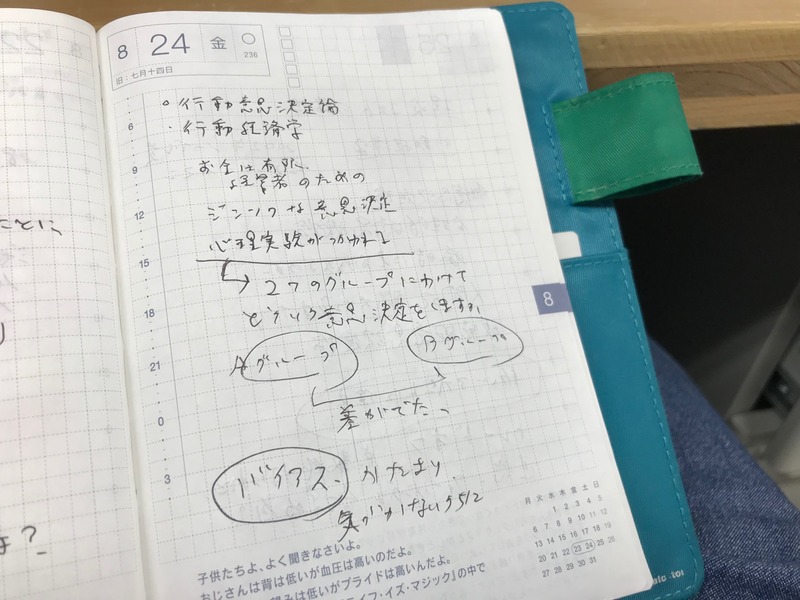 8 24 金
236
旧:七月十四日
○行動意思決定論
・行動経済学
お金は有限、
経営者のための
意思決定
心理実験がつかわれる
2つのグループにわけて
どういう意思決定をしますか
Aグループ
Bグループ
差がでたっ
バイアス、かたより
気がつかないうちに
6
9
12
15
18
21
0
3
8
子供たちよ、よく聞きなさいよ。
おじさんは背は低いが血圧は高いのだよ。
望みは低いがプライドは高いんだよ。
ライフ・イズ・マジック』の中で
月 火 水 木 金 土 日
1 2 3 4 5
6 7 8 9 10 11 12
13 14 15 16 17 18 19
20 21 22 23 24 25 26
27 28 29 30 31